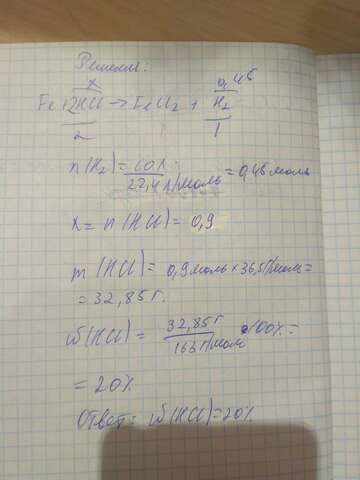 Решение:
x 0,45
Fe + 2HCl → FeCl2 + H2
2 1
n(H2) = 10л / 22,4 л/моль = 0,45 моль
x = n(HCl) = 0,9
m(HCl) = 0,9 моль × 36,5 г/моль =
= 32,85 г.
ω(HCl) = 32,85 г / 163 г/моль · 100% =
= 20%
Ответ: ω(HCl) = 20%